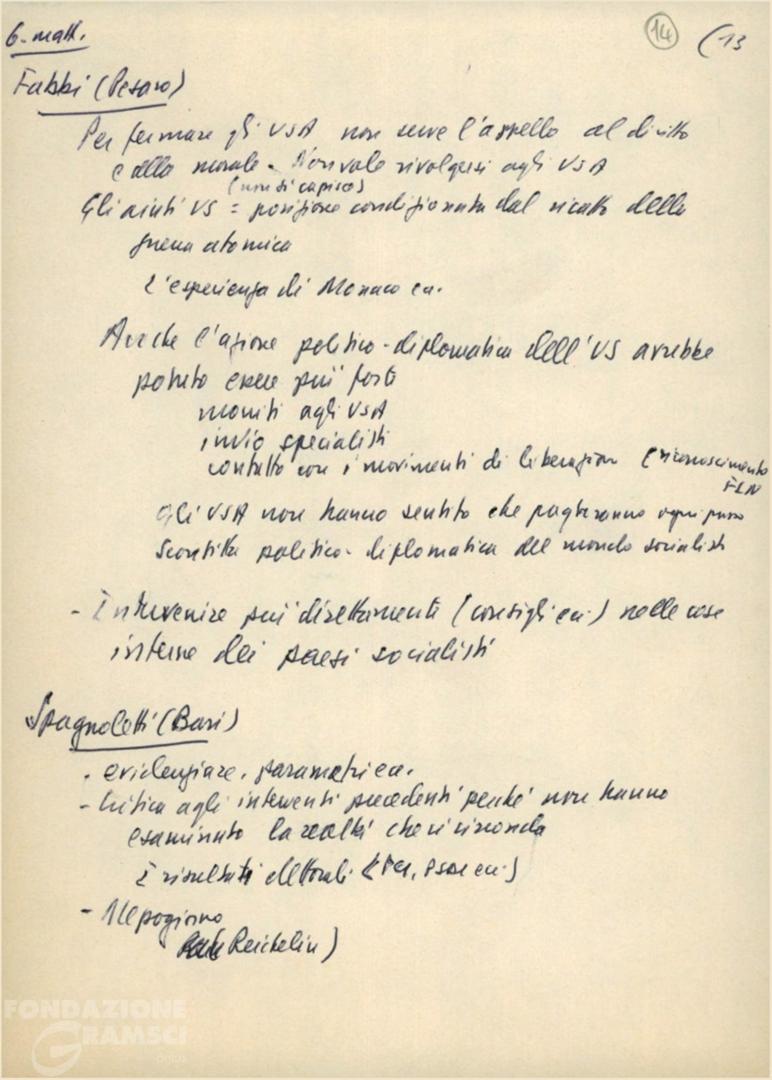 6. matt.
14 (13
Fabbi (Pesaro)
Per fermare gli USA non serve l'appello al diritto
e alla morale - Non vale rivolgersi agli USA
(non si capisce)
Gli aiuti US = posizione condizionata dal ricatto della
guerra atomica
L'esperienza di Monaco ecc.
Anche l'azione politico-diplomatica dell'US avrebbe
potuto essere più forte
moniti agli USA
invio specialisti
contatto con i movimenti di liberazione (riconoscimento
FLN
Gli USA non hanno sentito che pagheranno ogni
sconfitta politico-diplomatica del mondo socialista
- Intervenire più direttamente (consigli ecc.) nelle cose
interne dei paesi socialisti
Spagnoletti (Bari)
- evidenziare, parametri ecc.
- Critica agli interventi precedenti perché non hanno
esaminato la realtà che ci circonda
I risultati elettorali (PCI, ecc.)
- Mezzogiorno
Reichlin)
FONDAZIONE
GRAMSCI
onlus